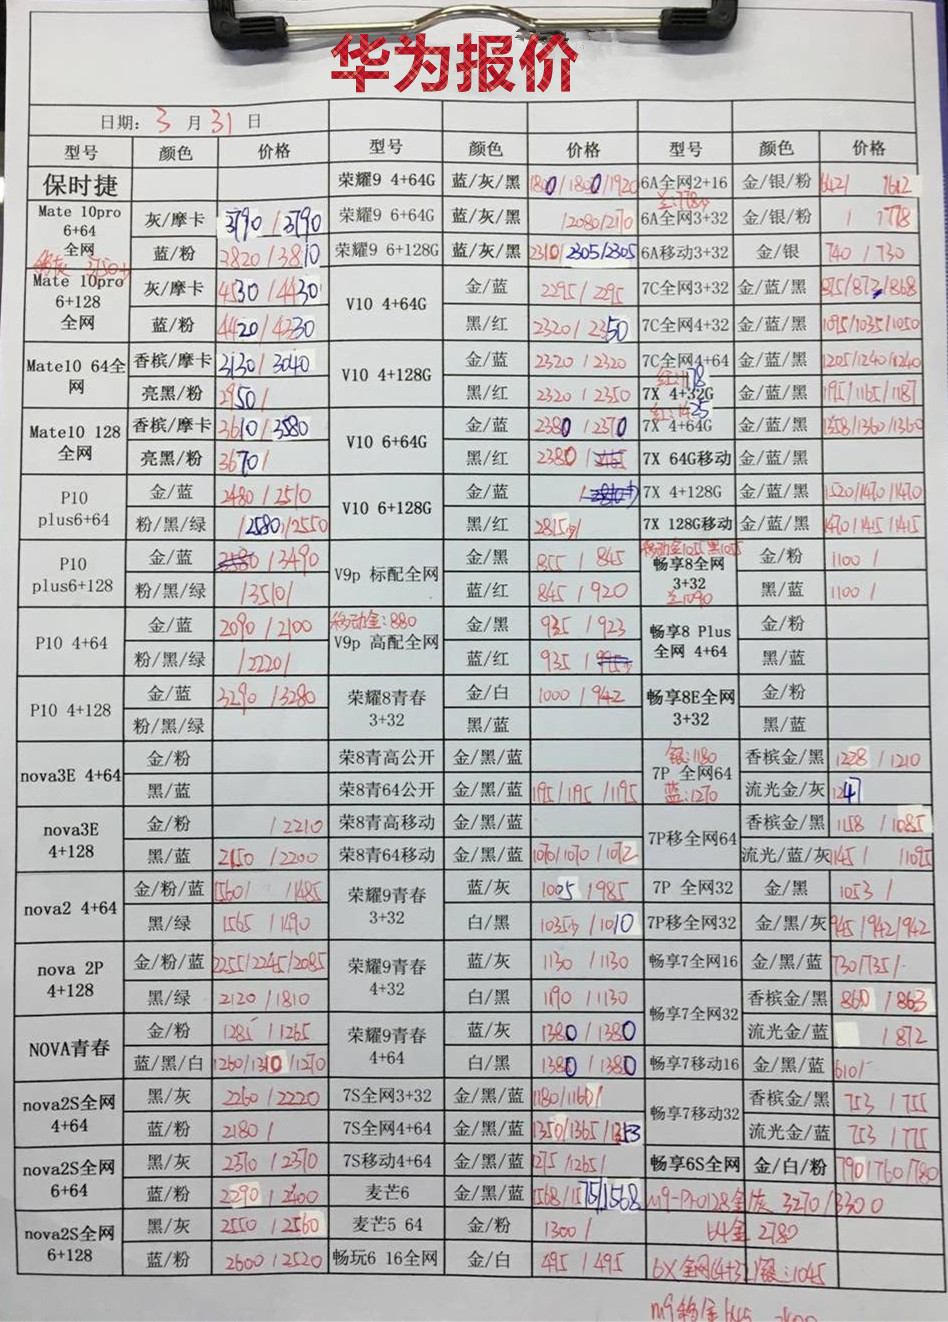 华为报价
日期: 3 月 31 日
型号 颜色 价格 型号 颜色 价格 型号 颜色 价格
保时捷 荣耀9 4+64G 蓝/灰/黑 1800/1800/1920 6A全网2+16 金/银/粉
Mate 10pro 6+64 全网 灰/摩卡 3790 / 3790 荣耀9 6+64G 蓝/灰/黑 /2080/2170 6A全网3+32 金/银/粉 / 1778
蓝/粉 3820 / 3810 荣耀9 6+128G 蓝/灰/黑 2310/2305/2305 6A移动3+32 金/银 740 / 730
Mate 10pro 6+128 全网 灰/摩卡 4530 / 4430 V10 4+64G 金/蓝 2295 / 2295 7C全网3+32 金/蓝/黑 875/872/868
蓝/粉 4420 / 4230 黑/红 2320 / 2350 7C全网4+32 金/蓝/黑 1095/1035/1050
Mate10 64全网 香槟/摩卡 3130 / 3040 V10 4+128G 金/蓝 2320 / 2320 7C全网4+64 金/蓝/黑 1205/1240/1240
亮黑/粉 2950 / 黑/红 2320 / 2350 7X 4+32G 金/蓝/黑 1195/1165/1187
Mate10 128全网 香槟/摩卡 3610 / 3580 V10 6+64G 金/蓝 2380 / 2370 7X 4+64G 金/蓝/黑 1358/1360/1360
亮黑/粉 3670 / 黑/红 2380 / 7X 64G移动 金/蓝/黑
P10 plus6+64 金/蓝 2480 / 2510 V10 6+128G 金/蓝 7X 4+128G 金/蓝/黑 1520/1470/1470
粉/黑/绿 /2580/2550 黑/红 2815 7X 128G移动 金/蓝/黑 1470/1415/1415
移动金1055 黑1055
P10 plus6+128 金/蓝 / 3490 V9p 标配全网 金/黑 855 / 845 畅享8全网 3+32 金/粉 1100 /
粉/黑/绿 /3510/ 蓝/红 845 / 920 蓝1090 黑/蓝 1100 /
移动金:880
P10 4+64 金/蓝 2090 / 2100 V9p 高配全网 金/黑 935 / 923 畅享8 Plus 全网 4+64 金/粉
粉/黑/绿 /2220/ 蓝/红 935 / 黑/蓝
P10 4+128 金/蓝 3290 / 3280 荣耀8青春 3+32 金/白 1000 / 942 畅享8E全网 3+32 金/粉
粉/黑/绿 黑/蓝 黑/蓝
nova3E 4+64 金/粉 荣8青高公开 金/黑/蓝 银:1180 7P 全网64 香槟金/黑 1228 / 1210
黑/蓝 荣8青64公开 金/黑/蓝 1195 / 1195 / 1195 蓝:1270 流光金/灰 1247
nova3E 4+128 金/粉 / 2210 荣8青高移动 金/黑/蓝 7P移全网64 香槟金/黑 1158 / 1085
黑/蓝 2150 / 2200 荣8青64移动 金/黑/蓝 1070/1070 /1072 流光/蓝/灰 1145 / 1095
nova2 4+64 金/粉/蓝 1560/ /1485 荣耀9青春 3+32 蓝/灰 1005 / 985 7P 全网32 金/黑 1053 /
黑/绿 1565 / 1490 白/黑 1035 / 1010 7P移全网32 金/黑/灰 945 /942/942
nova 2P 4+128 金/粉/蓝 2255/2245/2085 荣耀9青春 4+32 蓝/灰 1130 / 1130 畅享7全网16 金/黑/蓝 730/735/
黑/绿 2120 / 1810 白/黑 1190 / 1130 畅享7全网32 香槟金/黑 860 / 863
NOVA青春 金/粉 1285 / 1265 荣耀9青春 4+64 蓝/灰 1380 / 1380 流光金/蓝 / 872
蓝/黑/白 1260/1310 /1270 白/黑 1380 / 1380 畅享7移动16 金/黑/蓝 610/
nova2S全网 4+64 黑/灰 2260 / 2220 7S全网3+32 金/黑/蓝 1180/1160/ 畅享7移动32 香槟金/黑 753 / 755
蓝/粉 2180 / 7S全网4+64 金/黑/蓝 1350/1365 /1353 流光金/蓝 753 / 775
nova2S全网 6+64 黑/灰 2370 / 2370 7S移动4+64 金/黑/蓝 1275 /1265/ 畅享6S全网 金/白/粉 790/760/780
蓝/粉 2290 / 2400 麦芒6 金/黑/蓝 1568/1575/1568 m9-Pro128金/灰 3270 /3300
nova2S全网 6+128 黑/灰 2550 / 2560 麦芒5 64 金/粉 1300 / 64金 2780
蓝/粉 2600 / 2520 畅玩6 16全网 金/白 495 / 495 6X全网(4+3) 银:1045